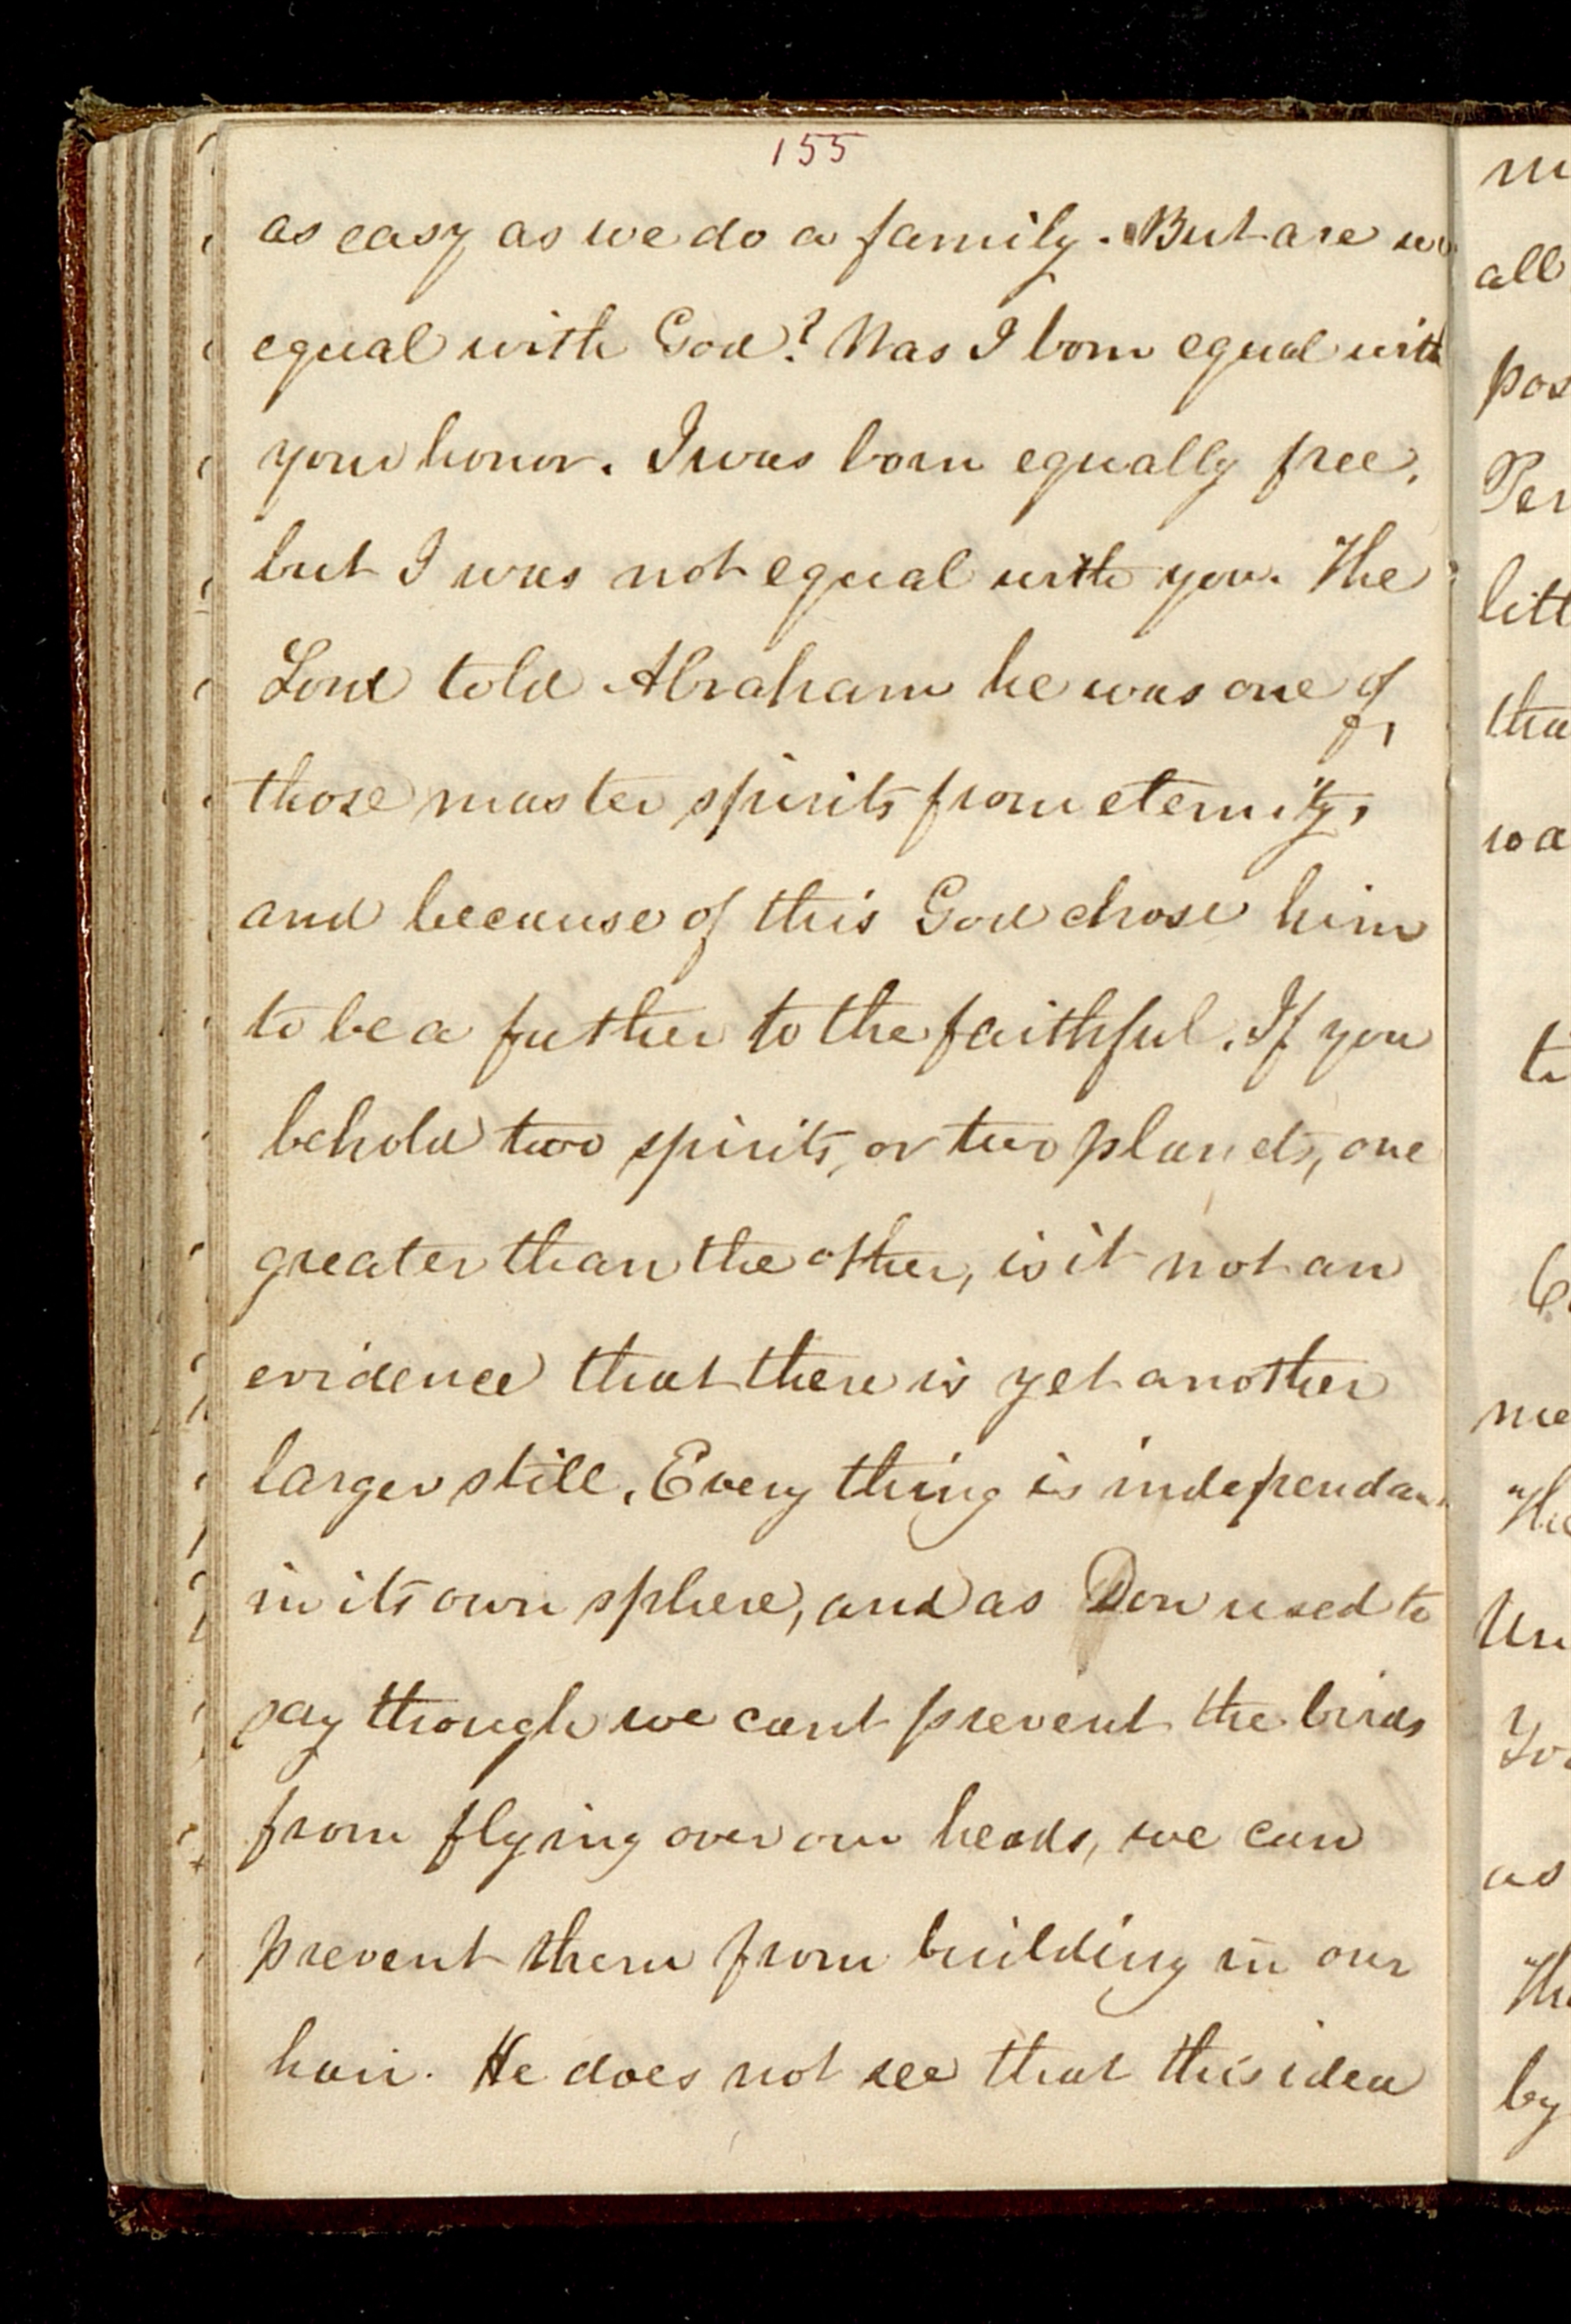 155
as easy as we do a family. But are we
equal with God? Was I born equal with
your honor. I was born equally free,
but I was not equal with you. The
Lord told Abraham he was one of
those master spirits from eternity,
and because of this God chose him
to be a father to the faithful. If you
behold two spirits, or two planets, one
greater than the other, is it not an
evidence that there is yet another
larger still. Every thing is independan
in its own sphere, and as Don used to
say though we cant prevent the birds
from flying over our heads, we can
prevent them from building in our
hair. He does not see that this idea
all
pos
Per
litt
tha
wa
ti
me
The
Un
as
The
by